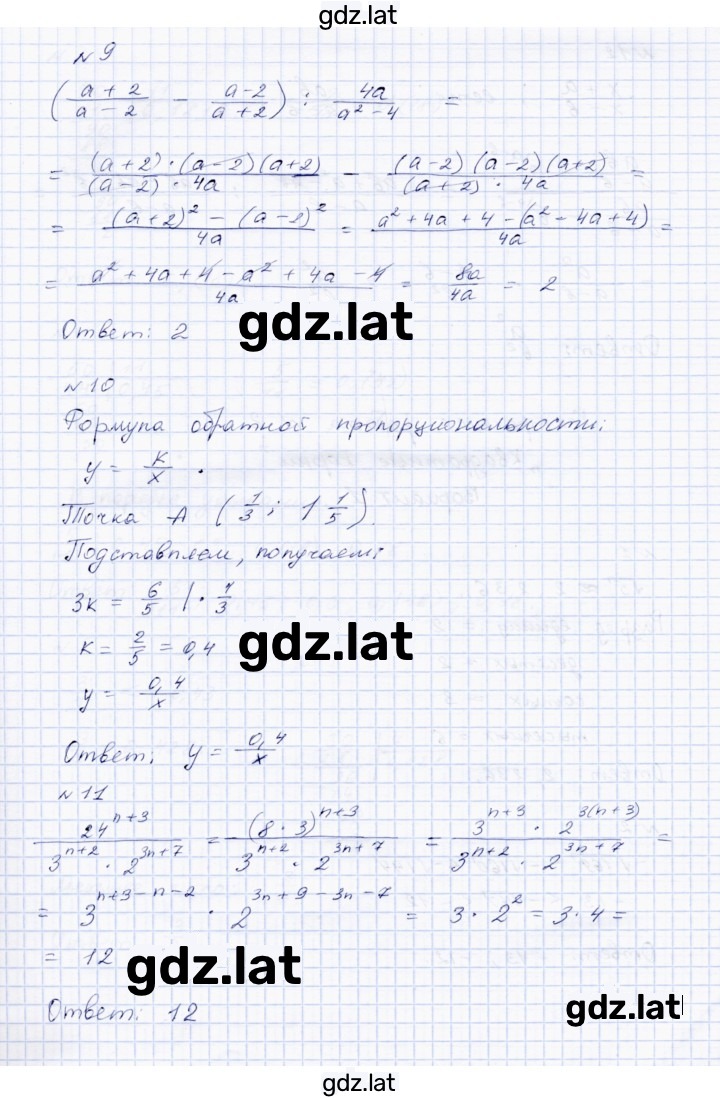 gdz.lat
№ 9
((a + 2)/(a − 2) − (a − 2)/(a + 2)) : 4a/(a² − 4) =
= ((a + 2) · (a − 2)(a + 2))/((a − 2) · 4a) − ((a − 2)(a − 2)(a + 2))/((a + 2) · 4a) =
= ((a + 2)² − (a − 2)²)/4a = (a² + 4a + 4 − (a² − 4a + 4))/4a =
= (a² + 4a + 4 − a² + 4a − 4)/4a = 8a/4a = 2
Ответ: 2
gdz.lat
№ 10
Формула обратной пропорциональности:
y = k/x .
Точка A (1/3; 1 1/5).
Подставляем, получаем:
3k = 6/5 | · 1/3
k = 2/5 = 0,4
gdz.lat
y = 0,4/x
Ответ: y = 0,4/x
№ 11
24ⁿ⁺³/(3ⁿ⁺² · 2³ⁿ⁺⁷) = (8 · 3)ⁿ⁺³/(3ⁿ⁺² · 2³ⁿ⁺⁷) = (3ⁿ⁺³ · 2³⁽ⁿ⁺³⁾)/(3ⁿ⁺² · 2³ⁿ⁺⁷) =
= 3ⁿ⁺³⁻ⁿ⁻² · 2³ⁿ⁺⁹⁻³ⁿ⁻⁷ = 3 · 2² = 3 · 4 =
= 12
gdz.lat
Ответ: 12
gdz.lat
gdz.lat